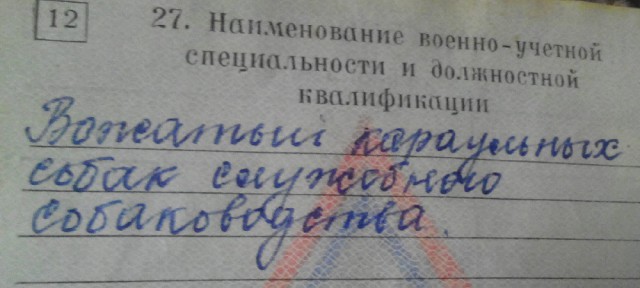 12
27. Наименование военно-учетной
специальности и должностной
квалификации
Вожатый караульных
собак служебного
собаководства.